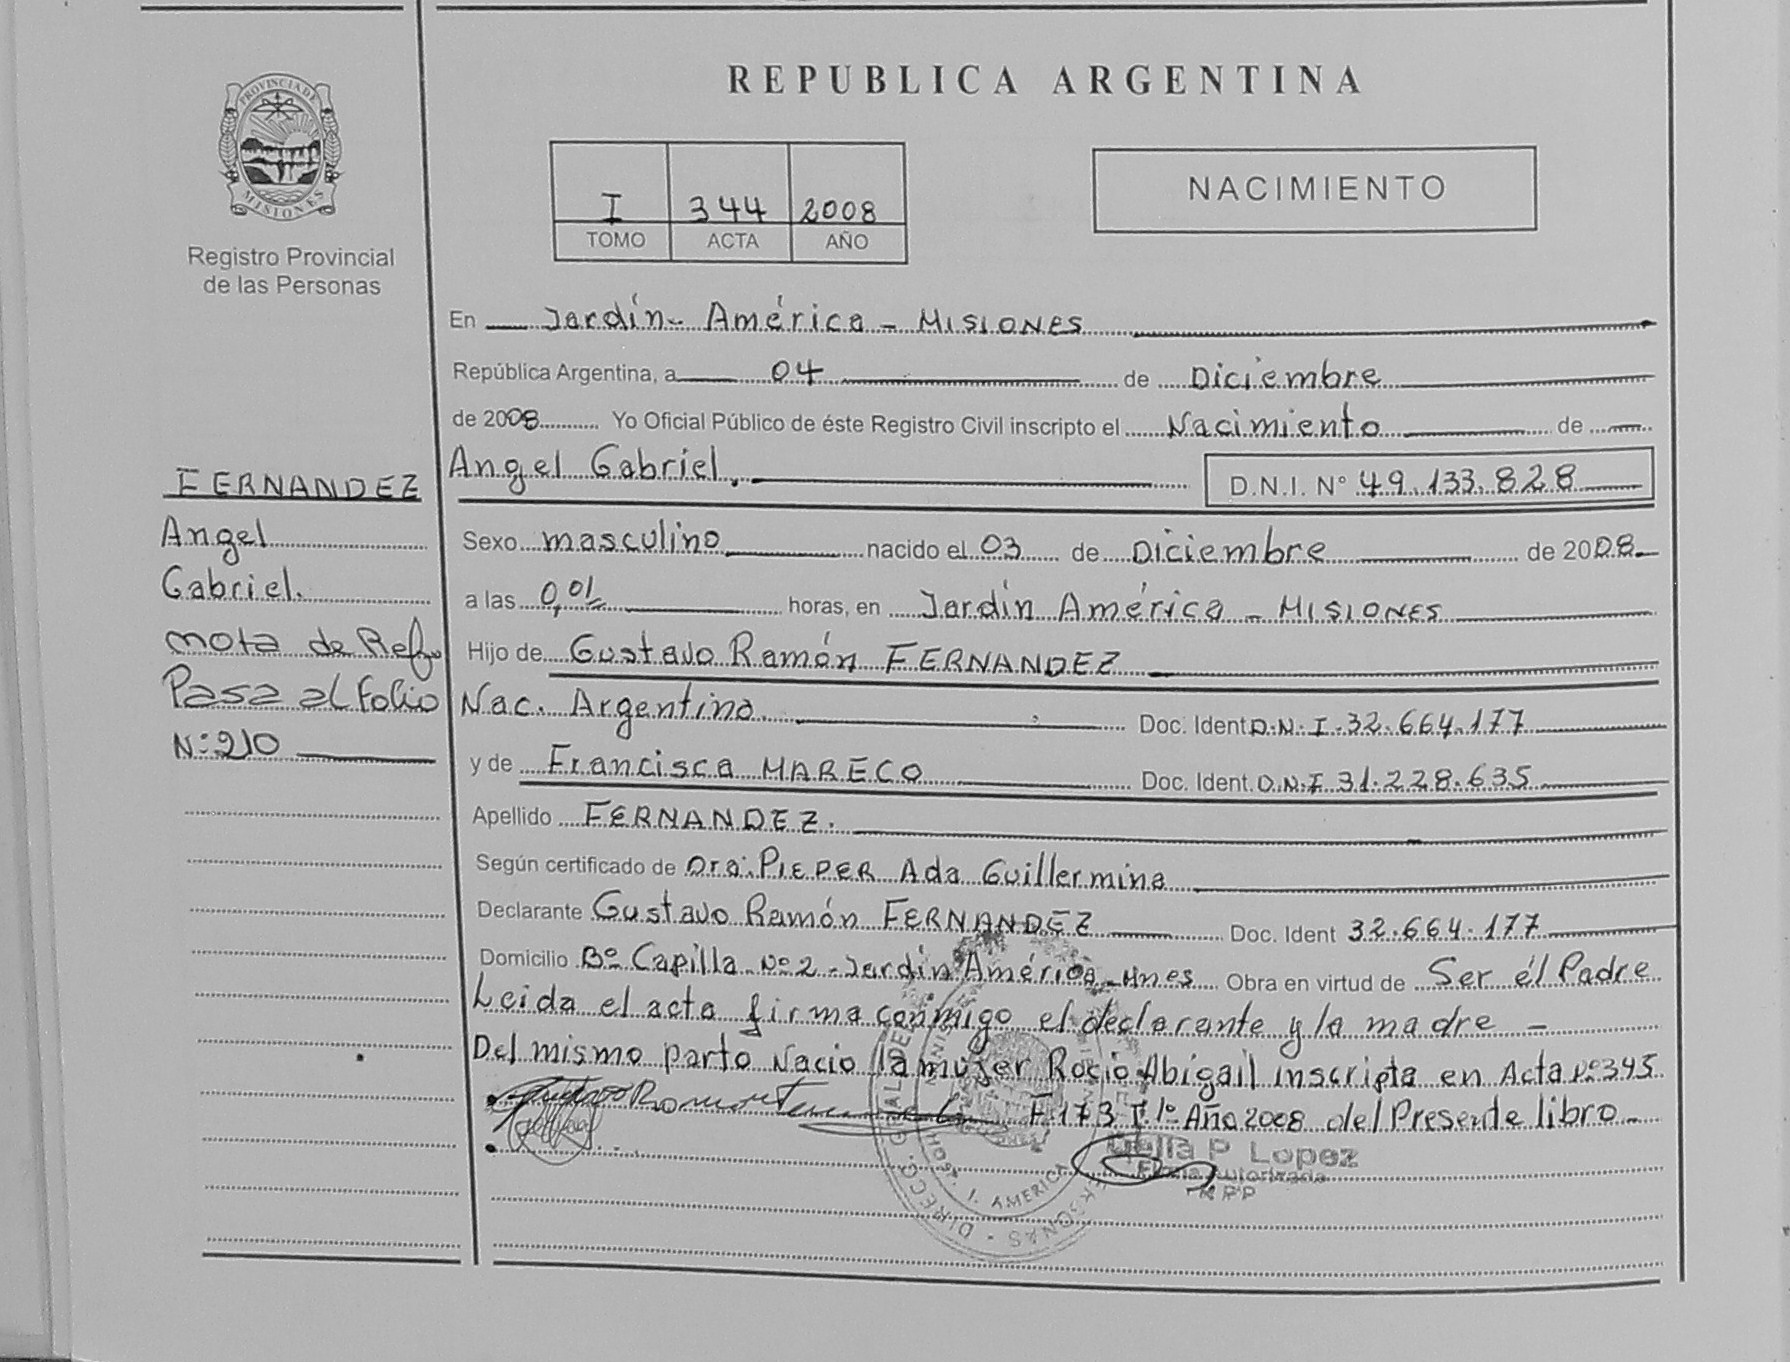 REPUBLICA ARGENTINA
PROVINCIA DE
MISIONES
Registro Provincial
de las Personas
I 344 2008
TOMO ACTA AÑO
NACIMIENTO
En Jardín América - MISIONES
República Argentina, a 04 de Diciembre
de 2008 Yo Oficial Público de éste Registro Civil inscripto el Nacimiento de
Angel Gabriel. D.N.I. Nº 49.133.828
Sexo masculino nacido el 03 de Diciembre de 2008
a las 0,01 horas, en Jardín América - MISIONES
Hijo de Gustavo Ramón FERNANDEZ
Nac. Argentino. Doc. Ident D.N.I. 32.664.177
y de Francisca MARECO Doc. Ident. D.N.I 31.228.635
Apellido FERNANDEZ.
Según certificado de Dra. PIEPER Ada Guillermina
Declarante Gustavo Ramón FERNANDEZ Doc. Ident 32.664.177
Domicilio Bº Capilla Nº 2 - Jardín América - Mnes Obra en virtud de Ser él Padre
Leida el acta firma conmigo el declarante y la madre -
Del mismo parto Nacio la mujer Rocio Abigail inscripta en Acta Nº 345
F 173 Tº 1º Año 2008 del Presente libro
FERNANDEZ
Angel
Gabriel.
nota de Refª
Pasa al folio
Nº 210
Lopez
Firma Autorizada
R P P
J. AMERICA